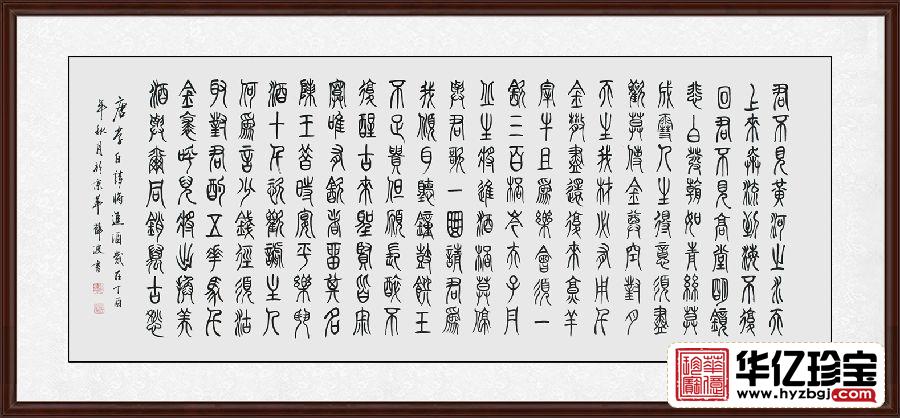 君不見黃河之水天
上來奔流到海不復
回君不見高堂明鏡
悲白髮朝如青絲莫
成雪人生得意須盡
歡莫使金尊空對月
天生我材必有用千
金散盡還復來烹羊
宰牛且爲樂會須一
飲三百杯岑夫子丹
丘生將進酒杯莫停
與君歌一曲請君爲
我傾耳聽鐘鼓饌玉
不足貴但願長醉不
復醒古來聖賢皆寂
寞唯有飲者留其名
陳王昔時宴平樂斗
酒十千恣歡謔主人
何爲言少錢徑須沽
取對君酌五華馬千
金裘呼兒將出換美
酒與爾同銷萬古愁
唐李白詩將進酒歲在丁酉
年秋月於京華書
华亿珍宝
www.hyzbgj.com